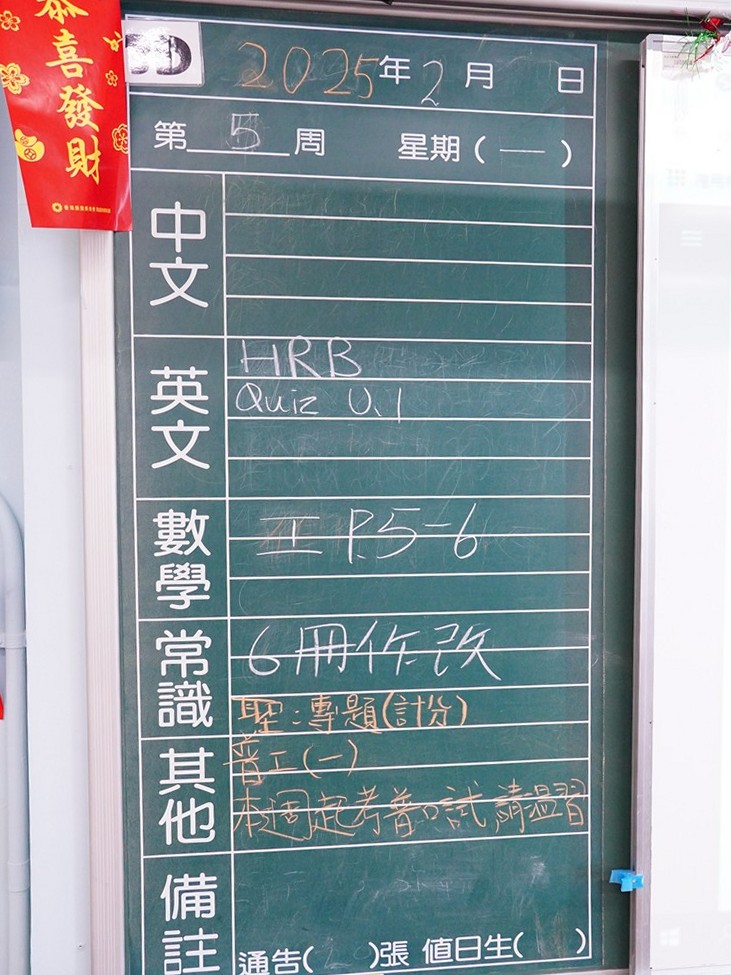 恭喜發財
5D 2025年2月 日
第 5 周 星期(一)
中文
英文
HRB
Quiz U.1
數學
工 P.5-6
常識
6冊作改
聖:專題(計分)
其他
普工(一)
本週起考普口試 請溫習
備註
通告( )張 值日生( )